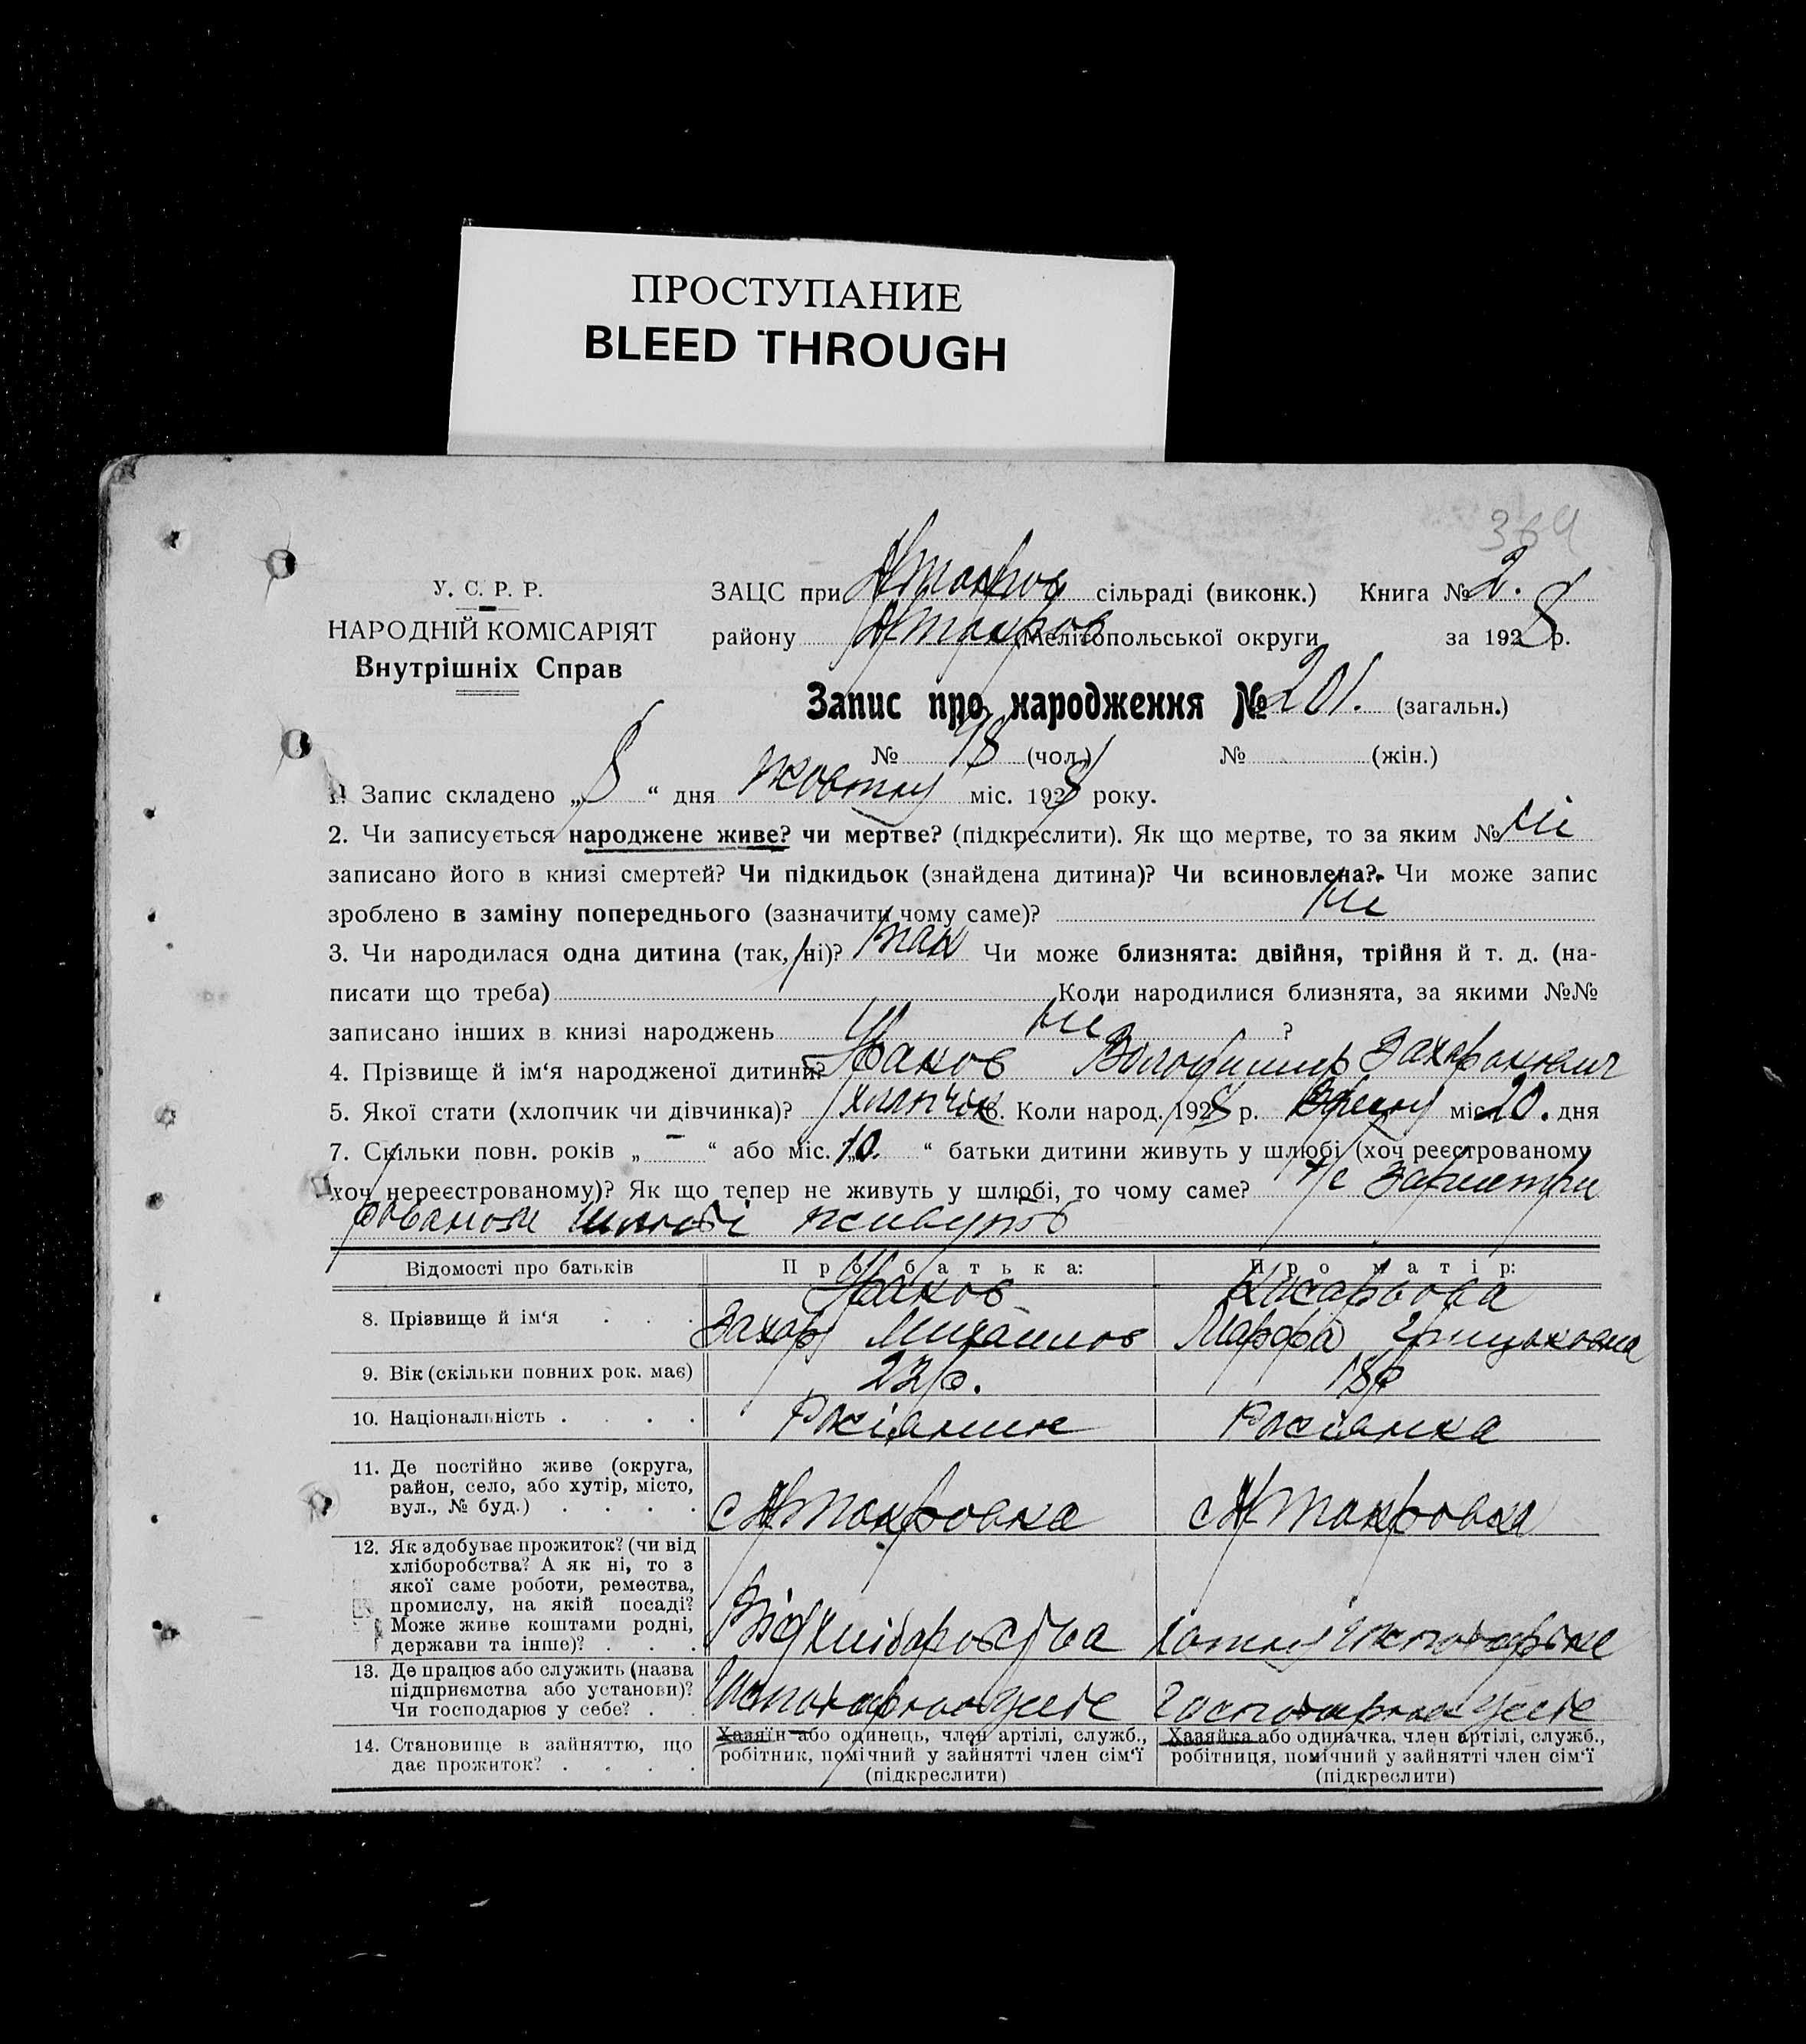 ПРОСТУПАНИЕ
BLEED THROUGH
364
У. С. Р. Р.
НАРОДНІЙ КОМІСАРІЯТ
Внутрішніх Справ
ЗАЦС при сільраді (виконк.) Книга № 2.
району Мелітопольської округи за 1928 р.
Запис про народження № 201. (загальн.)
№ 98 (чол.) № (жін.)
1. Запис складено „8“ дня жовтня міс. 1928 року.
2. Чи записується народжене живе? чи мертве? (підкреслити). Як що мертве, то за яким № ні
записано його в книзі смертей? Чи підкидьок (знайдена дитина)? Чи всиновлена? Чи може запис
зроблено в заміну попереднього (зазначити чому саме)? ні
3. Чи народилася одна дитина (так, ні)? так Чи може близнята: двійня, трійня й т. д. (на-
писати що треба) Коли народилися близнята, за якими №№
записано інших в книзі народжень ні ?
4. Прізвище й ім‘я народженої дитини? Володимир Захарович
5. Якої стати (хлопчик чи дівчинка)? хлопчик 6. Коли народ. 1928 р. міс. 20. дня
7. Скільки повн. років „-“ або міс. „10.“ батьки дитини живуть у шлюбі (хоч реєстрованому
хоч нереєстрованому)? Як що тепер не живуть у шлюбі, то чому саме?
живуть
Відомості про батьків
Про батька:
Про матір:
8. Прізвище й ім‘я . . .
Захар Михайлов
Марфа
9. Вік (скільки повних рок. має)
23 р.
18 р
10. Національність . . . .
Росіянин
Росіянка
11. Де постійно живе (округа,
район, село, або хутір, місто,
вул., № буд.) . . . .
12. Як здобуває прожиток? (чи від
хліборобства? А як ні, то з
якої саме роботи, ремества,
промислу, на якій посаді?
Може живе коштами родні,
держави та інше)? . . .
Від
13. Де працює або служить (назва
підприємства або установи)?
Чи господарює у себе? . .
14. Становище в зайняттю, що
дає прожиток? . . . .
Хазяїн або одинець, член артілі, служб.,
робітник, помічний у зайнятті член сім‘ї
(підкреслити)
Хазяйка або одиначка, член артілі, служб.,
робітниця, помічний у зайнятті член сім‘ї
(підкреслити)